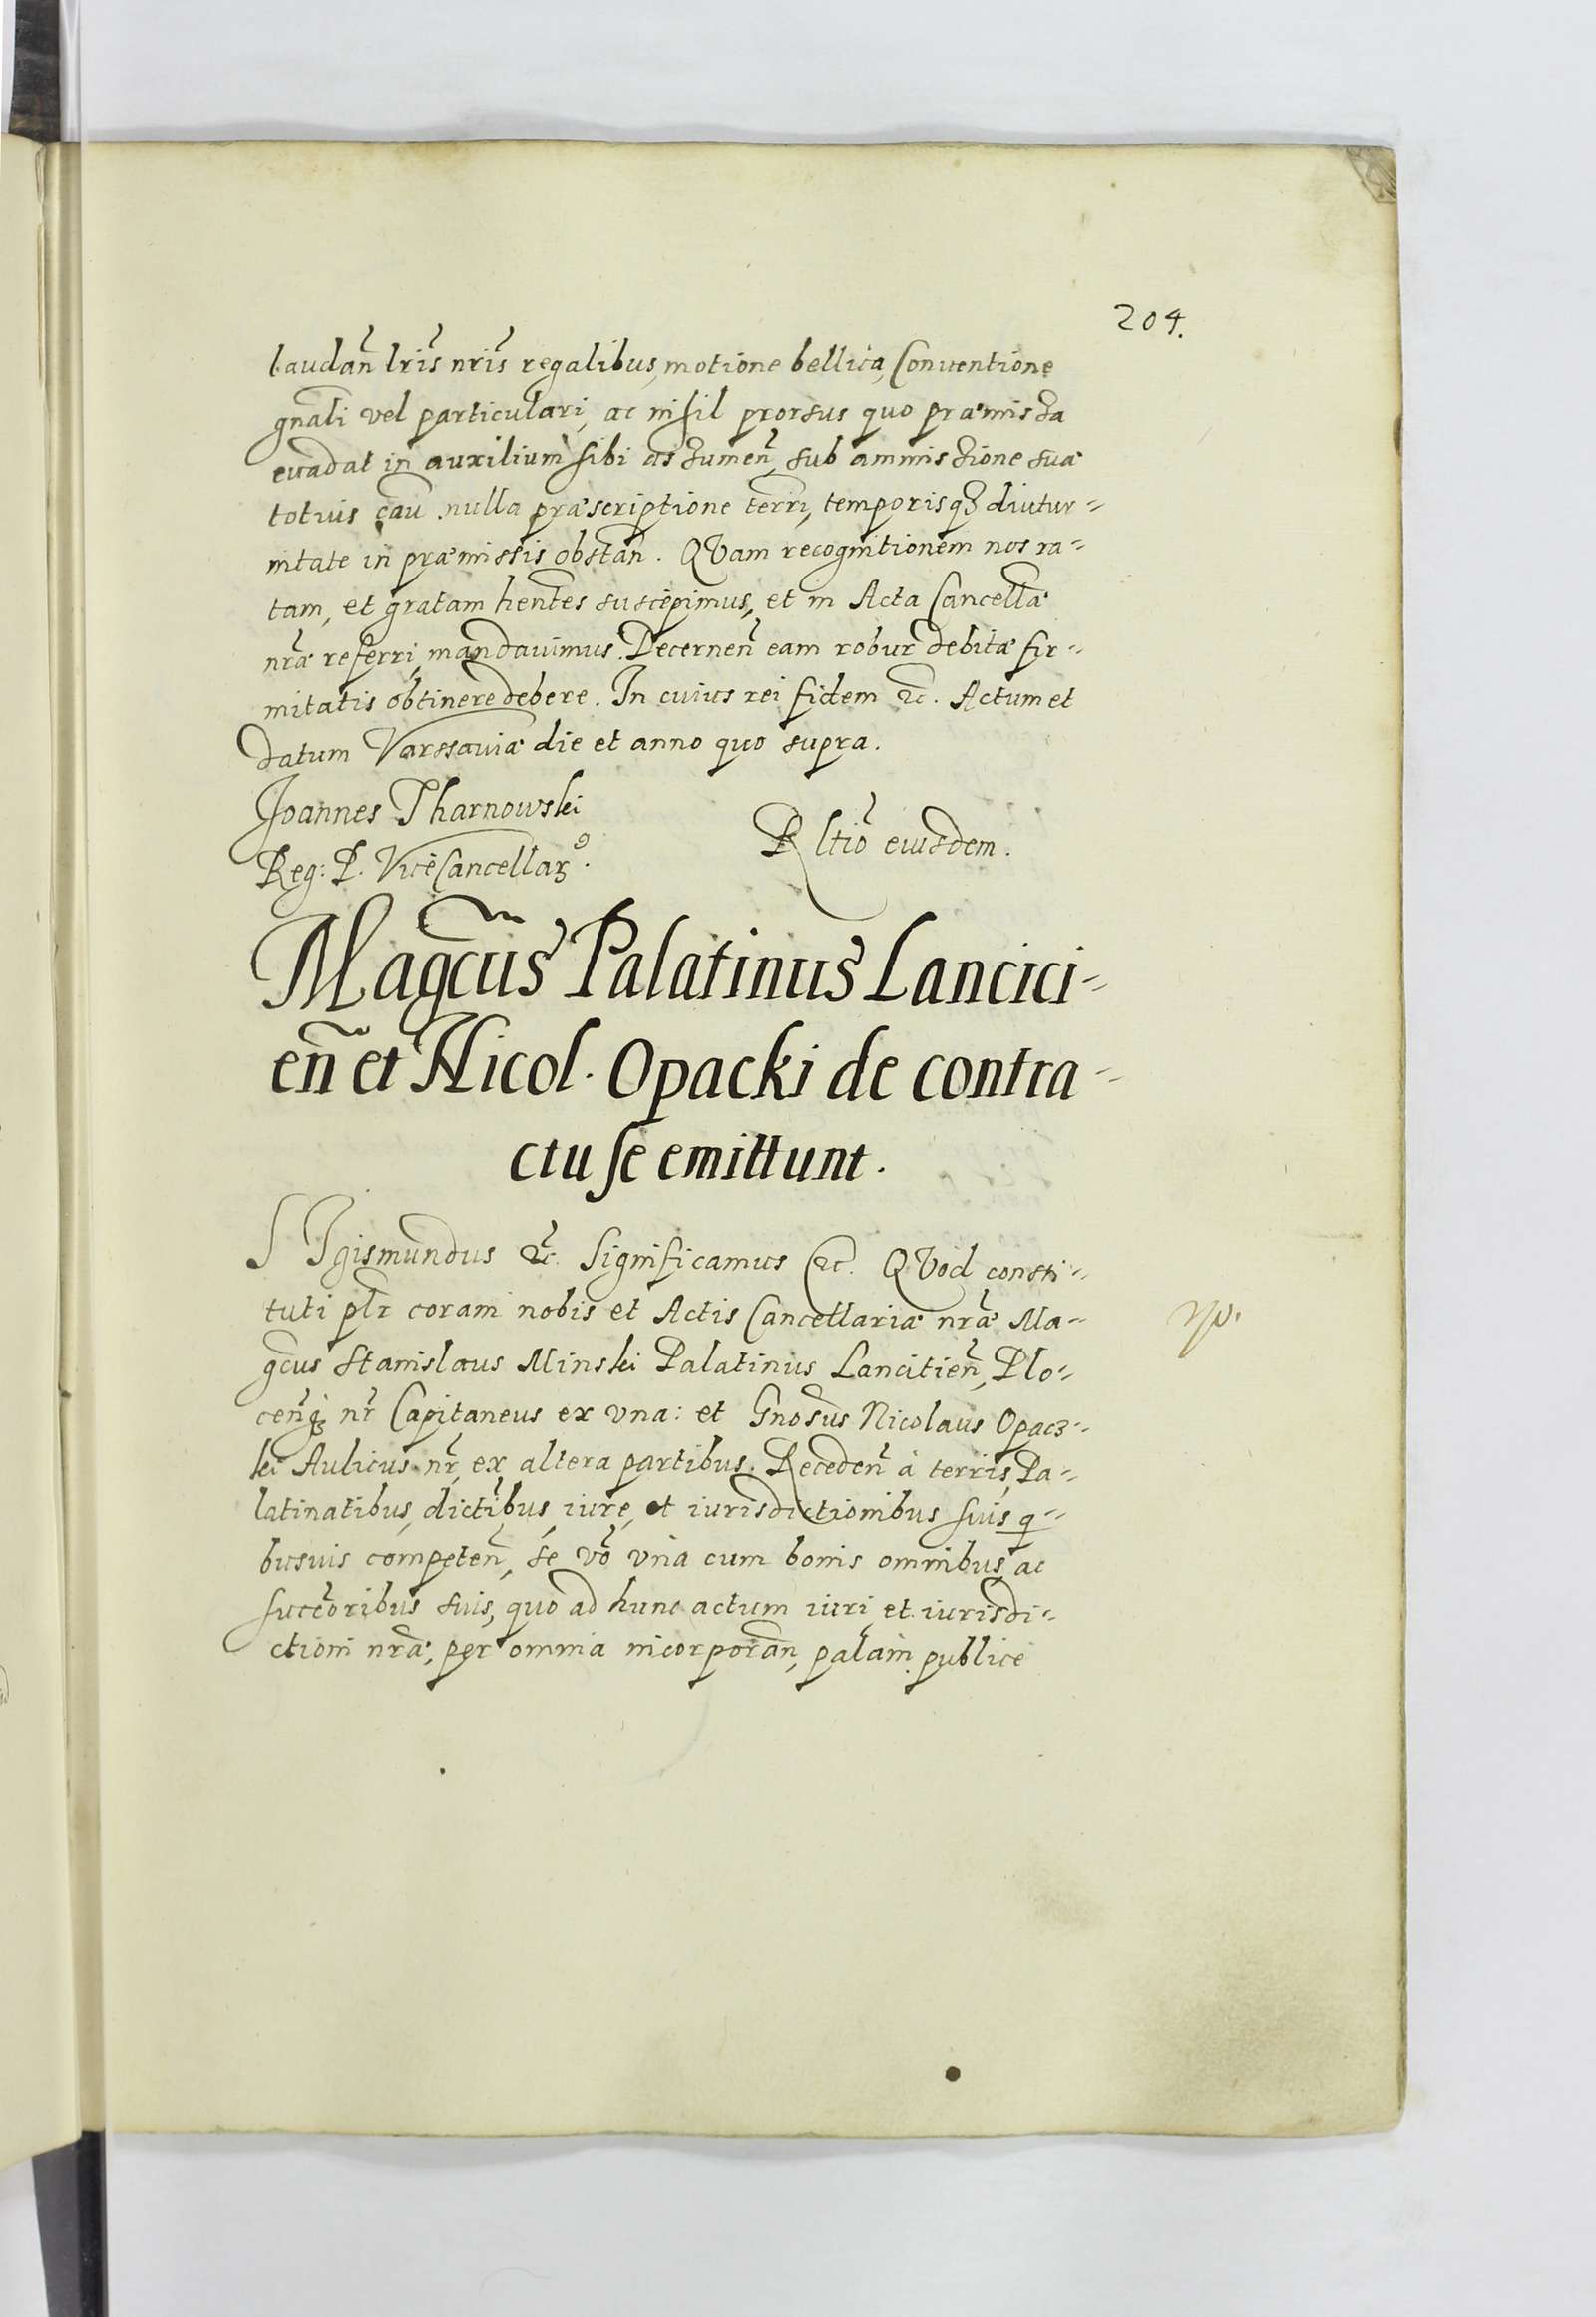 204.
laudan̄ lr̄is nr̄is regalibus, motione bellica, Conventione
gn̄ali vel particulari, ac nihil prorsus quo præmissa
evadat in auxilium sibi assumen̄, sub ammissione suæ
totius cau nulla præscriptione terri, temporisqꝫ diutur-
nitate in præmissis obstan̄. QVam recognitionem nos ra-
tam, et gratam hen̄tes suscepimus, et in Acta Cancellæ
nr̄æ referri, mandavimus. Decernen̄ eam robur debitæ fir-
mitatis obtinere debere. In cuius rei fidem ꝛc. Actum et
datum Varssaviæ die et anno quo supra.
Joannes Tharnowski
Reg: P. ViceCancellarꝫ.
Rltio ̄ eiusdem.
Magcus Palatinus Lancici-
en̄ et Nicol. Opacki de contra-
ctu se emittunt.
SIgismundus ꝛc. Significamus ꝛc. QVod consti-
tuti pl̄r coram nobis et Actis Cancellariæ nr̄æ Ma-
gcus Stanislaus Minski Palatinus Lancitien̄, Plo-
cen̄qꝫ nr̄ Capitaneus ex vna: et Gnosus Nicolaus Opacz-
ki Aulicus nr̄, ex altera partibus. Receden̄ à terris, Pa-
latinatibus, dictibus, iure, et iurisdictionibus suis q-
busuis competen̄, se vō vnà cum bonis omnibus, ac
succ̄oribus suis, quo ad hunc actum iuri, et iurisdi-
ctioni nr̄æ, per omnia incorporan̄, palàm publicè